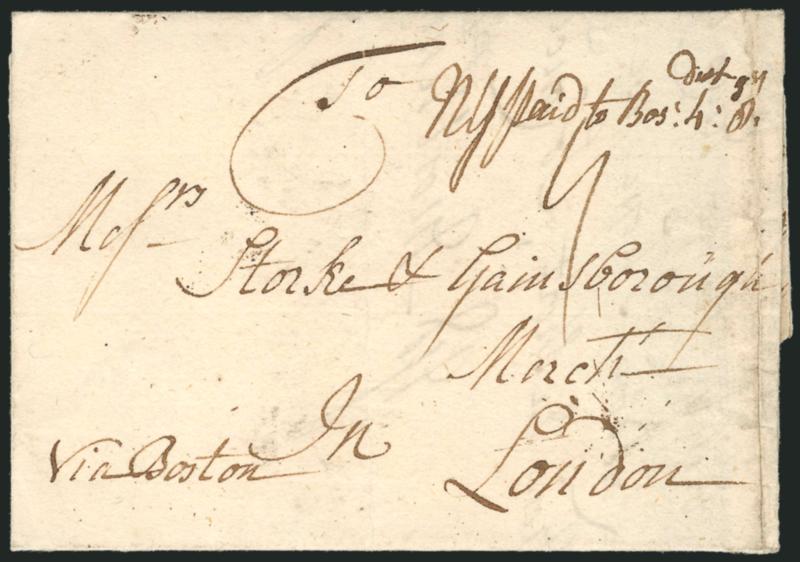 To
NY paid to Bos: 4: 8.
Messrs
Storke & Gainsborough
Merchts
In
Via Boston
London